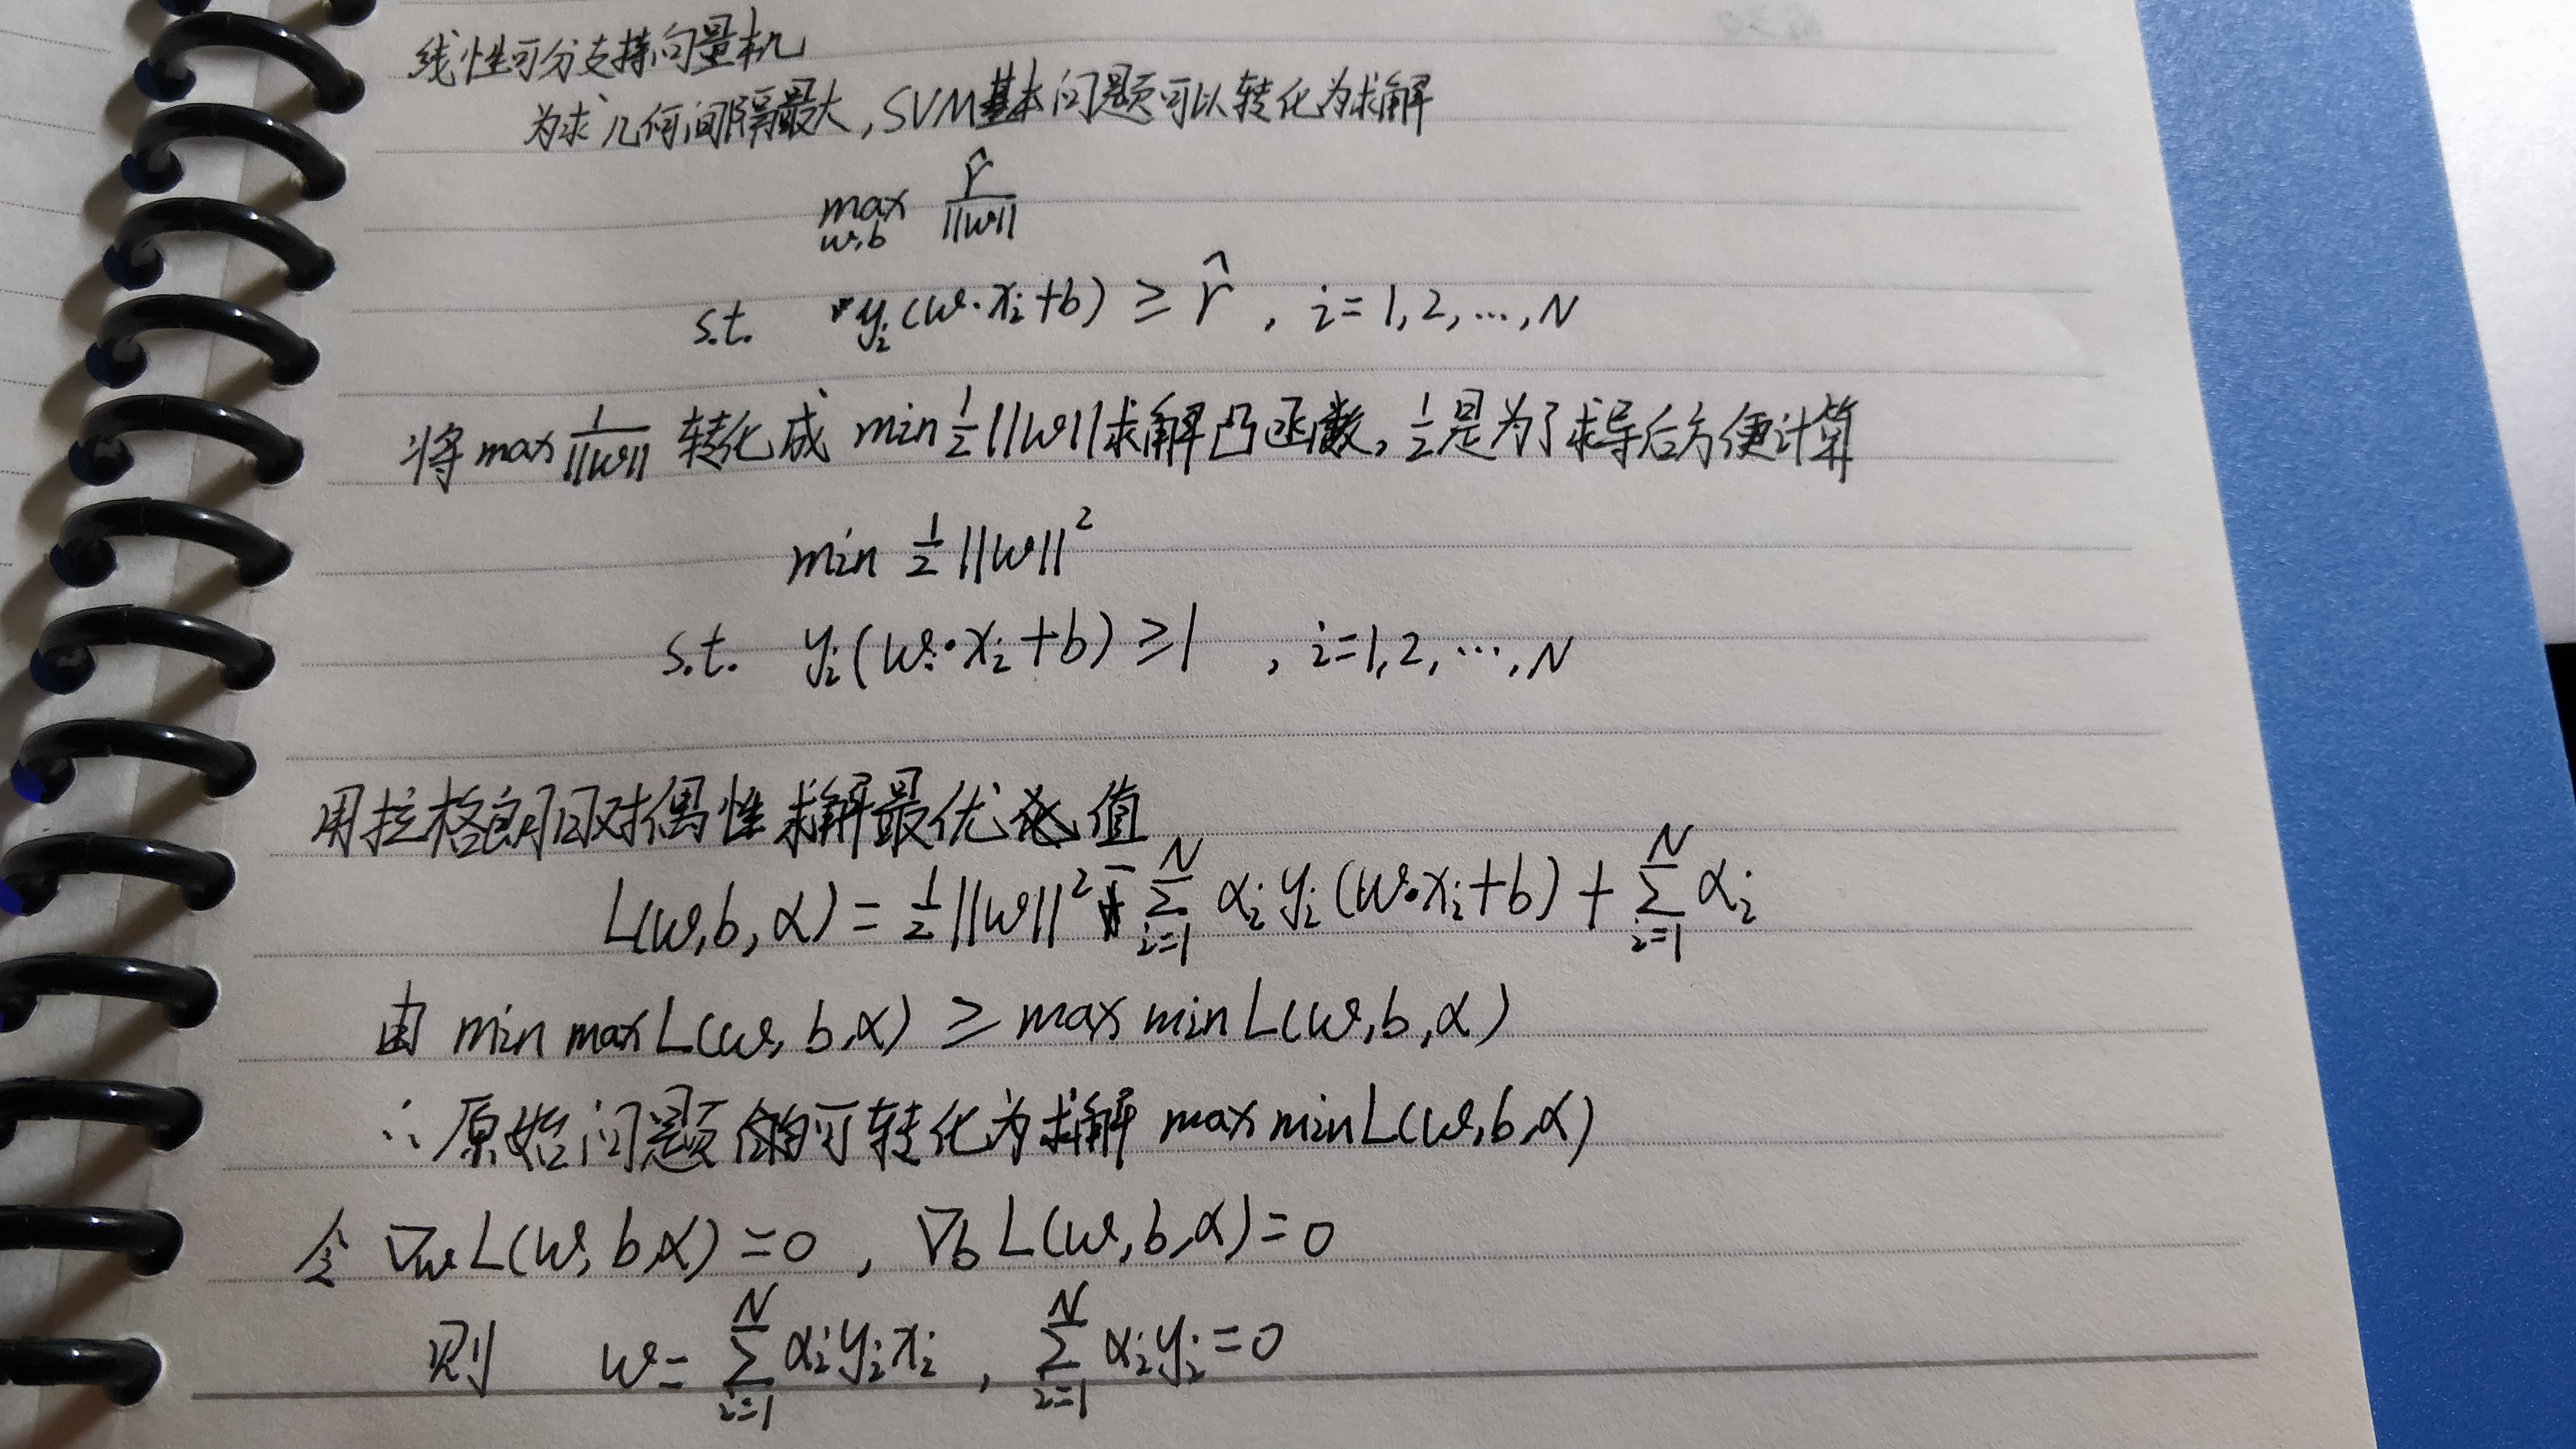 线性可分支持向量机
为求几何间隔最大,SVM基本问题可以转化为求解
max_{w,b} \hat{r}/||w||
s.t. y_i(w·x_i+b) ≥ \hat{r} , i=1,2,...,N
将max 1/||w|| 转化成 min 1/2||w||求解凸函数, 1/2是为了求导后方便计算
min 1/2||w||^2
s.t. y_i(w·x_i+b) ≥1 , i=1,2,...,N
用拉格朗日对偶性求解最优值
L(w,b,α) = 1/2||w||^2 - ∑_{i=1}^{N} α_i y_i(w·x_i+b) + ∑_{i=1}^{N} α_i
由 min max L(w,b,α) ≥ max min L(w,b,α)
∴原始问题的可转化为求解 max min L(w,b,α)
令 ∇_w L(w,b,α)=0 , ∇_b L(w,b,α)=0
则 w= ∑_{i=1}^{N} α_i y_i x_i , ∑_{i=1}^{N} α_i y_i =0